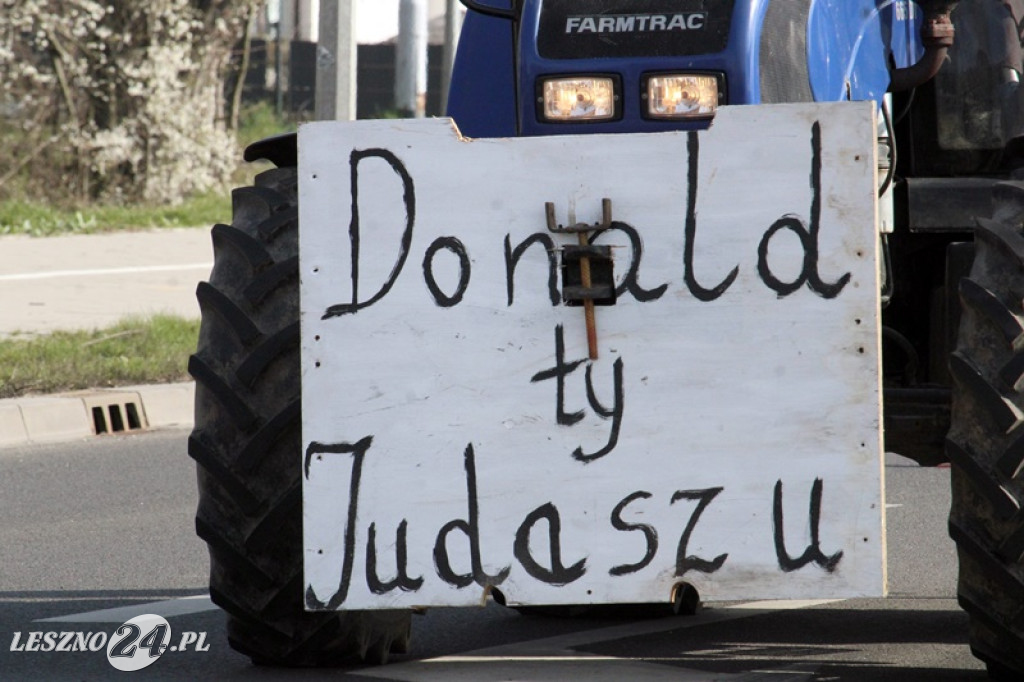 FARMTRAC
Donald
ty
Judaszu
LESZNO24.PL